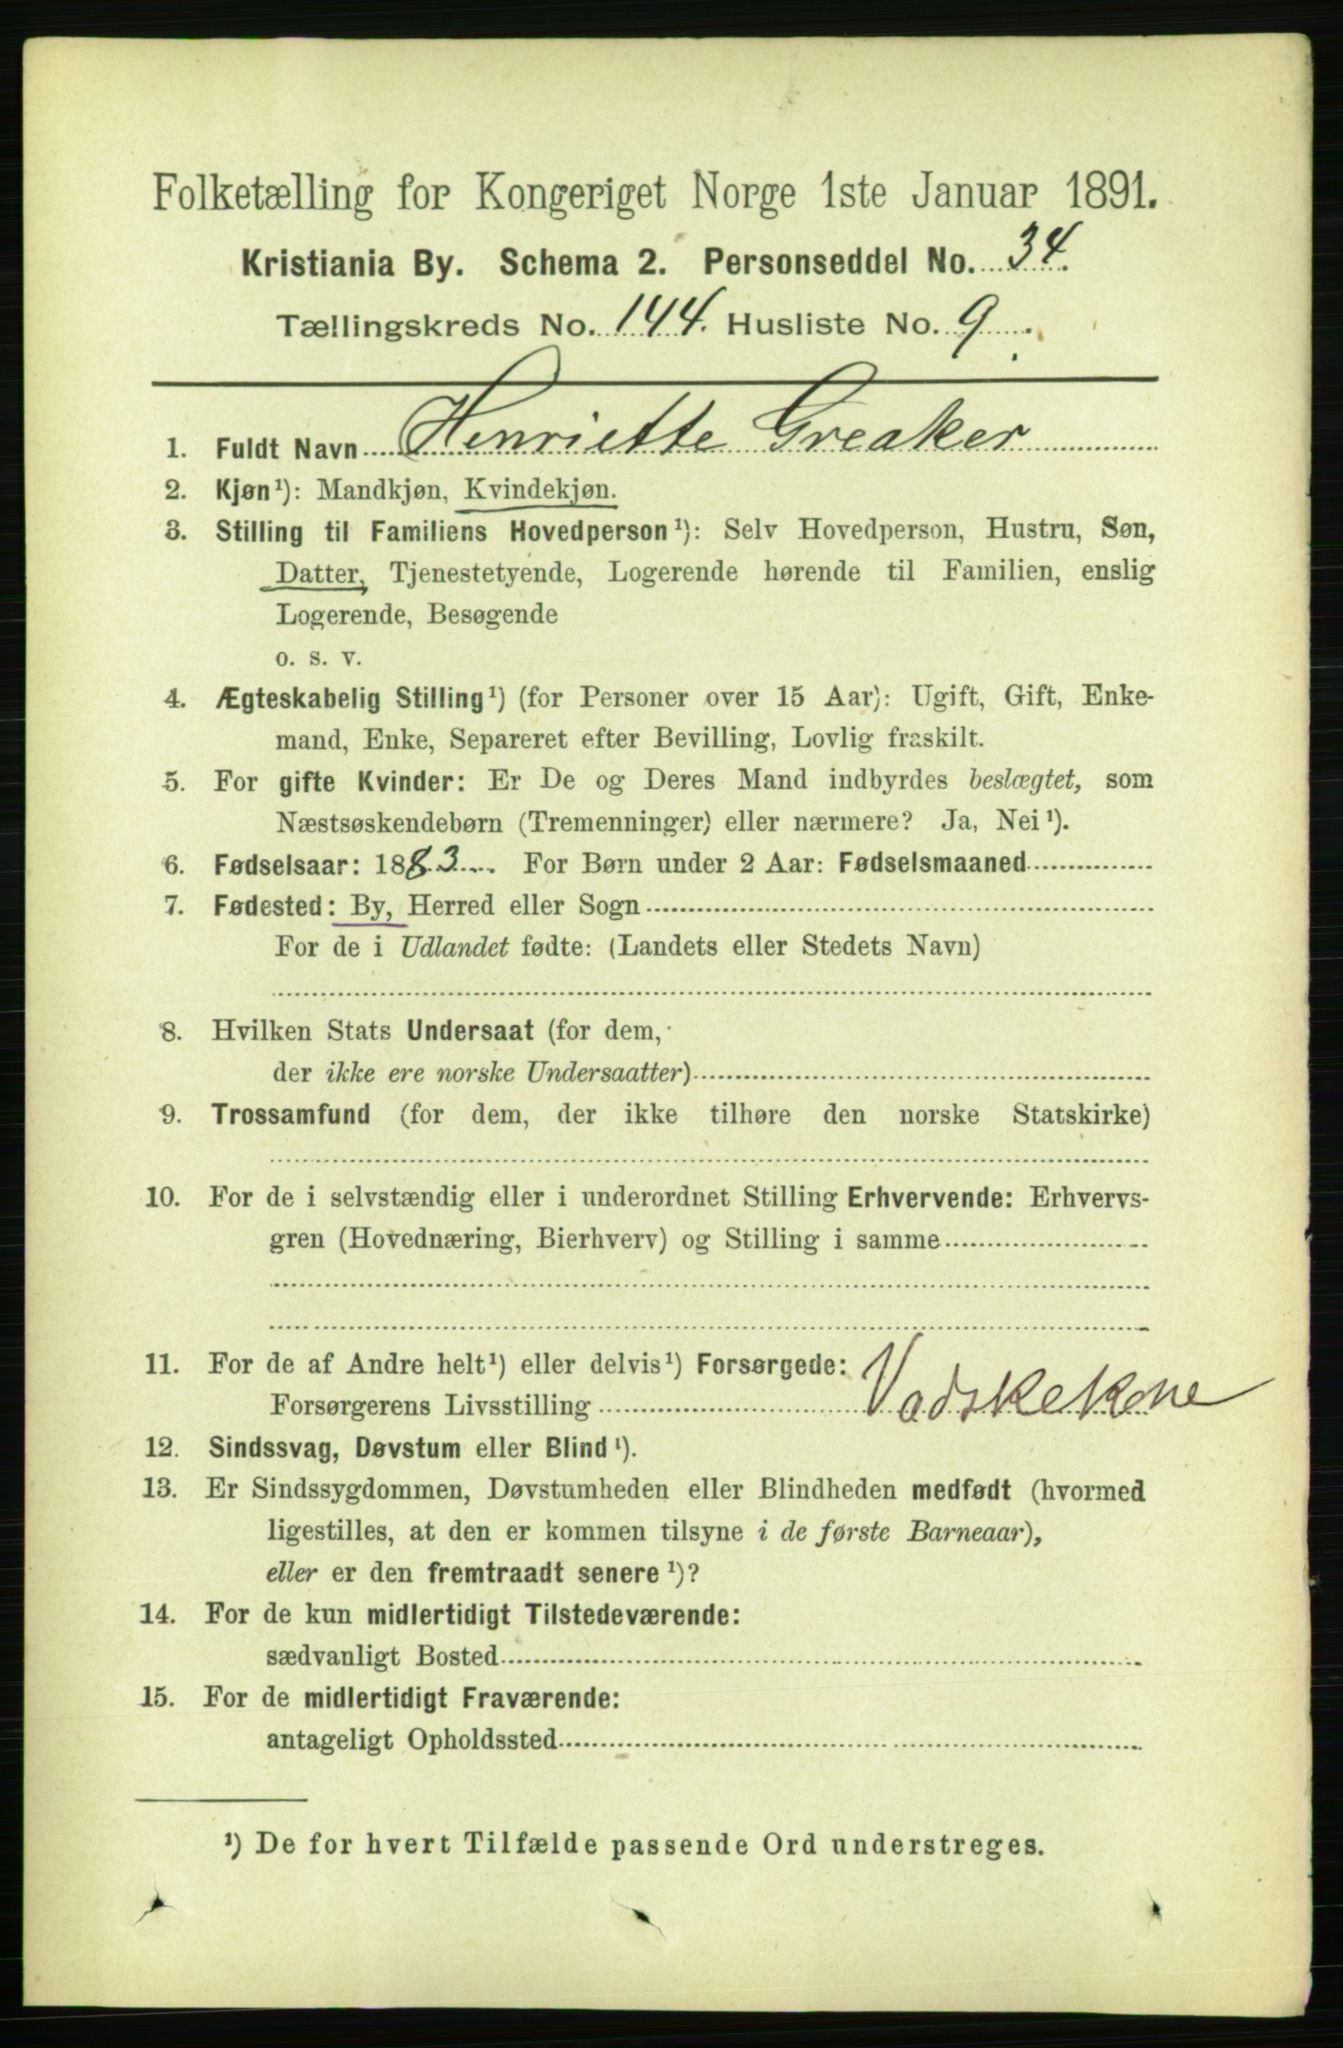 Folketælling for Kongeriget Norge 1ste Januar 1891.
Kristiania By. Schema 2. Personseddel No. 34.
Tællingskreds No. 144. Husliste No. 9.
1. Fuldt Navn Henriette Greaker
2. Kjøn¹): Mandkjøn, Kvindekjøn.
3. Stilling til Familiens Hovedperson¹): Selv Hovedperson, Hustru, Søn,
Datter, Tjenestetyende, Logerende hørende til Familien, enslig
Logerende, Besøgende
o. s. v.
4. Ægteskabelig Stilling¹) (for Personer over 15 Aar): Ugift, Gift, Enke-
mand, Enke, Separeret efter Bevilling, Lovlig fraskilt.
5. For gifte Kvinder: Er De og Deres Mand indbyrdes beslægtet, som
Næstsøskendebørn (Tremenninger) eller nærmere? Ja, Nei¹).
6. Fødselsaar: 1883. For Børn under 2 Aar: Fødselsmaaned
7. Fødested: By, Herred eller Sogn
For de i Udlandet fødte: (Landets eller Stedets Navn)
8. Hvilken Stats Undersaat (for dem,
der ikke ere norske Undersaatter)
9. Trossamfund (for dem, der ikke tilhøre den norske Statskirke)
10. For de i selvstændig eller i underordnet Stilling Erhvervende: Erhvervs-
gren (Hovednæring, Bierhverv) og Stilling i samme
11. For de af Andre helt¹) eller delvis¹) Forsørgede:
Forsørgerens Livsstilling Vadskekone
12. Sindssvag, Døvstum eller Blind¹).
13. Er Sindssygdommen, Døvstumheden eller Blindheden medfødt (hvormed
ligestilles, at den er kommen tilsyne i de første Barneaar),
eller er den fremtraadt senere¹)?
14. For de kun midlertidigt Tilstedeværende:
sædvanligt Bosted
15. For de midlertidigt Fraværende:
antageligt Opholdssted
¹) De for hvert Tilfælde passende Ord understreges.